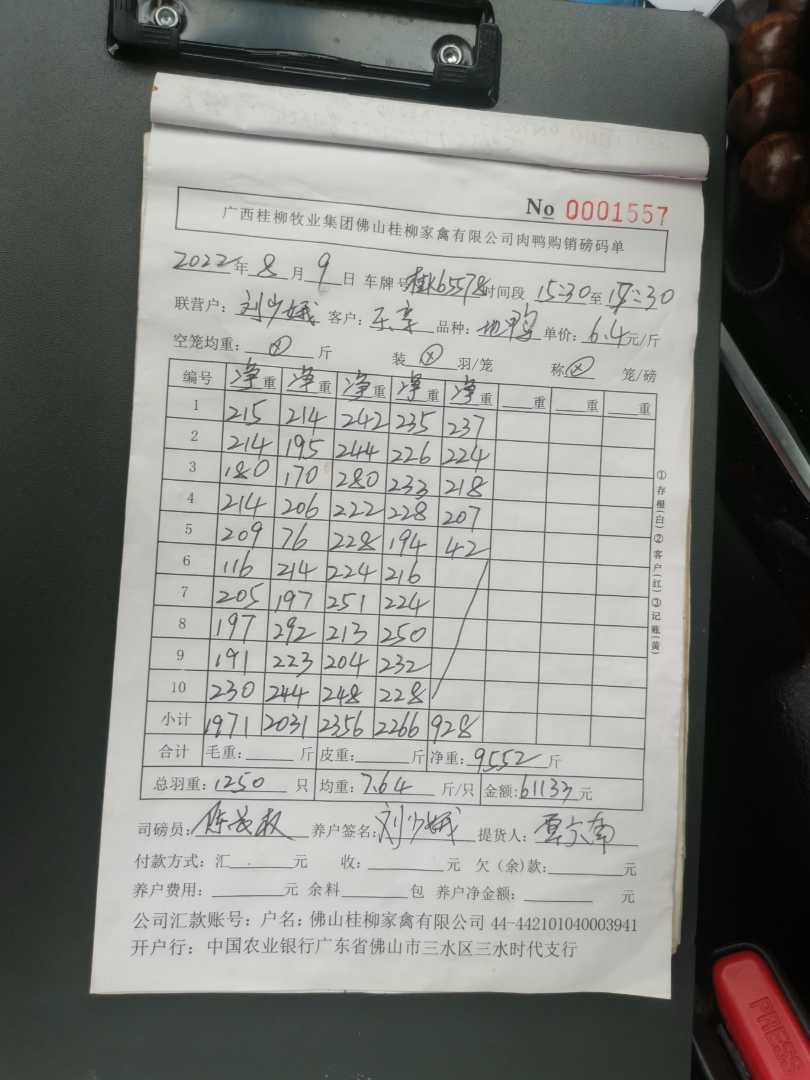 No 0001557
广西桂柳牧业集团佛山桂柳家禽有限公司肉鸭购销磅码单
2022年8月9日 车牌号桂K65578时间段 15:30至17:30
联营户:刘少娥 客户: 品种: 单价:6.4元/斤
空笼均重:⊗斤 装⊗羽/笼 称⊗笼/磅
编号 净重 净重 净重 净重 净重 重 重 重
1 215 214 242 235 237
2 214 195 244 226 224
3 180 170 280 233 218
4 214 206 222 228 207
5 209 76 228 194 42
6 116 214 224 216
7 205 197 251 224
8 197 292 213 250
9 191 223 204 232
10 230 244 248 228
小计 1971 2031 2356 2266 928
合计 毛重:斤 皮重:斤 净重:9552斤
总羽重:1250只 均重:7.64斤/只 金额:61133元
司磅员: 养户签名:刘少娥 提货人:
付款方式:汇元 收:元 欠(余)款:元
养户费用:元 余料包 养户净金额:元
公司汇款账号:户名:佛山桂柳家禽有限公司 44-442101040003941
开户行:中国农业银行广东省佛山市三水区三水时代支行
①存根(白)②客户(红)③记账(黄)
PRESS